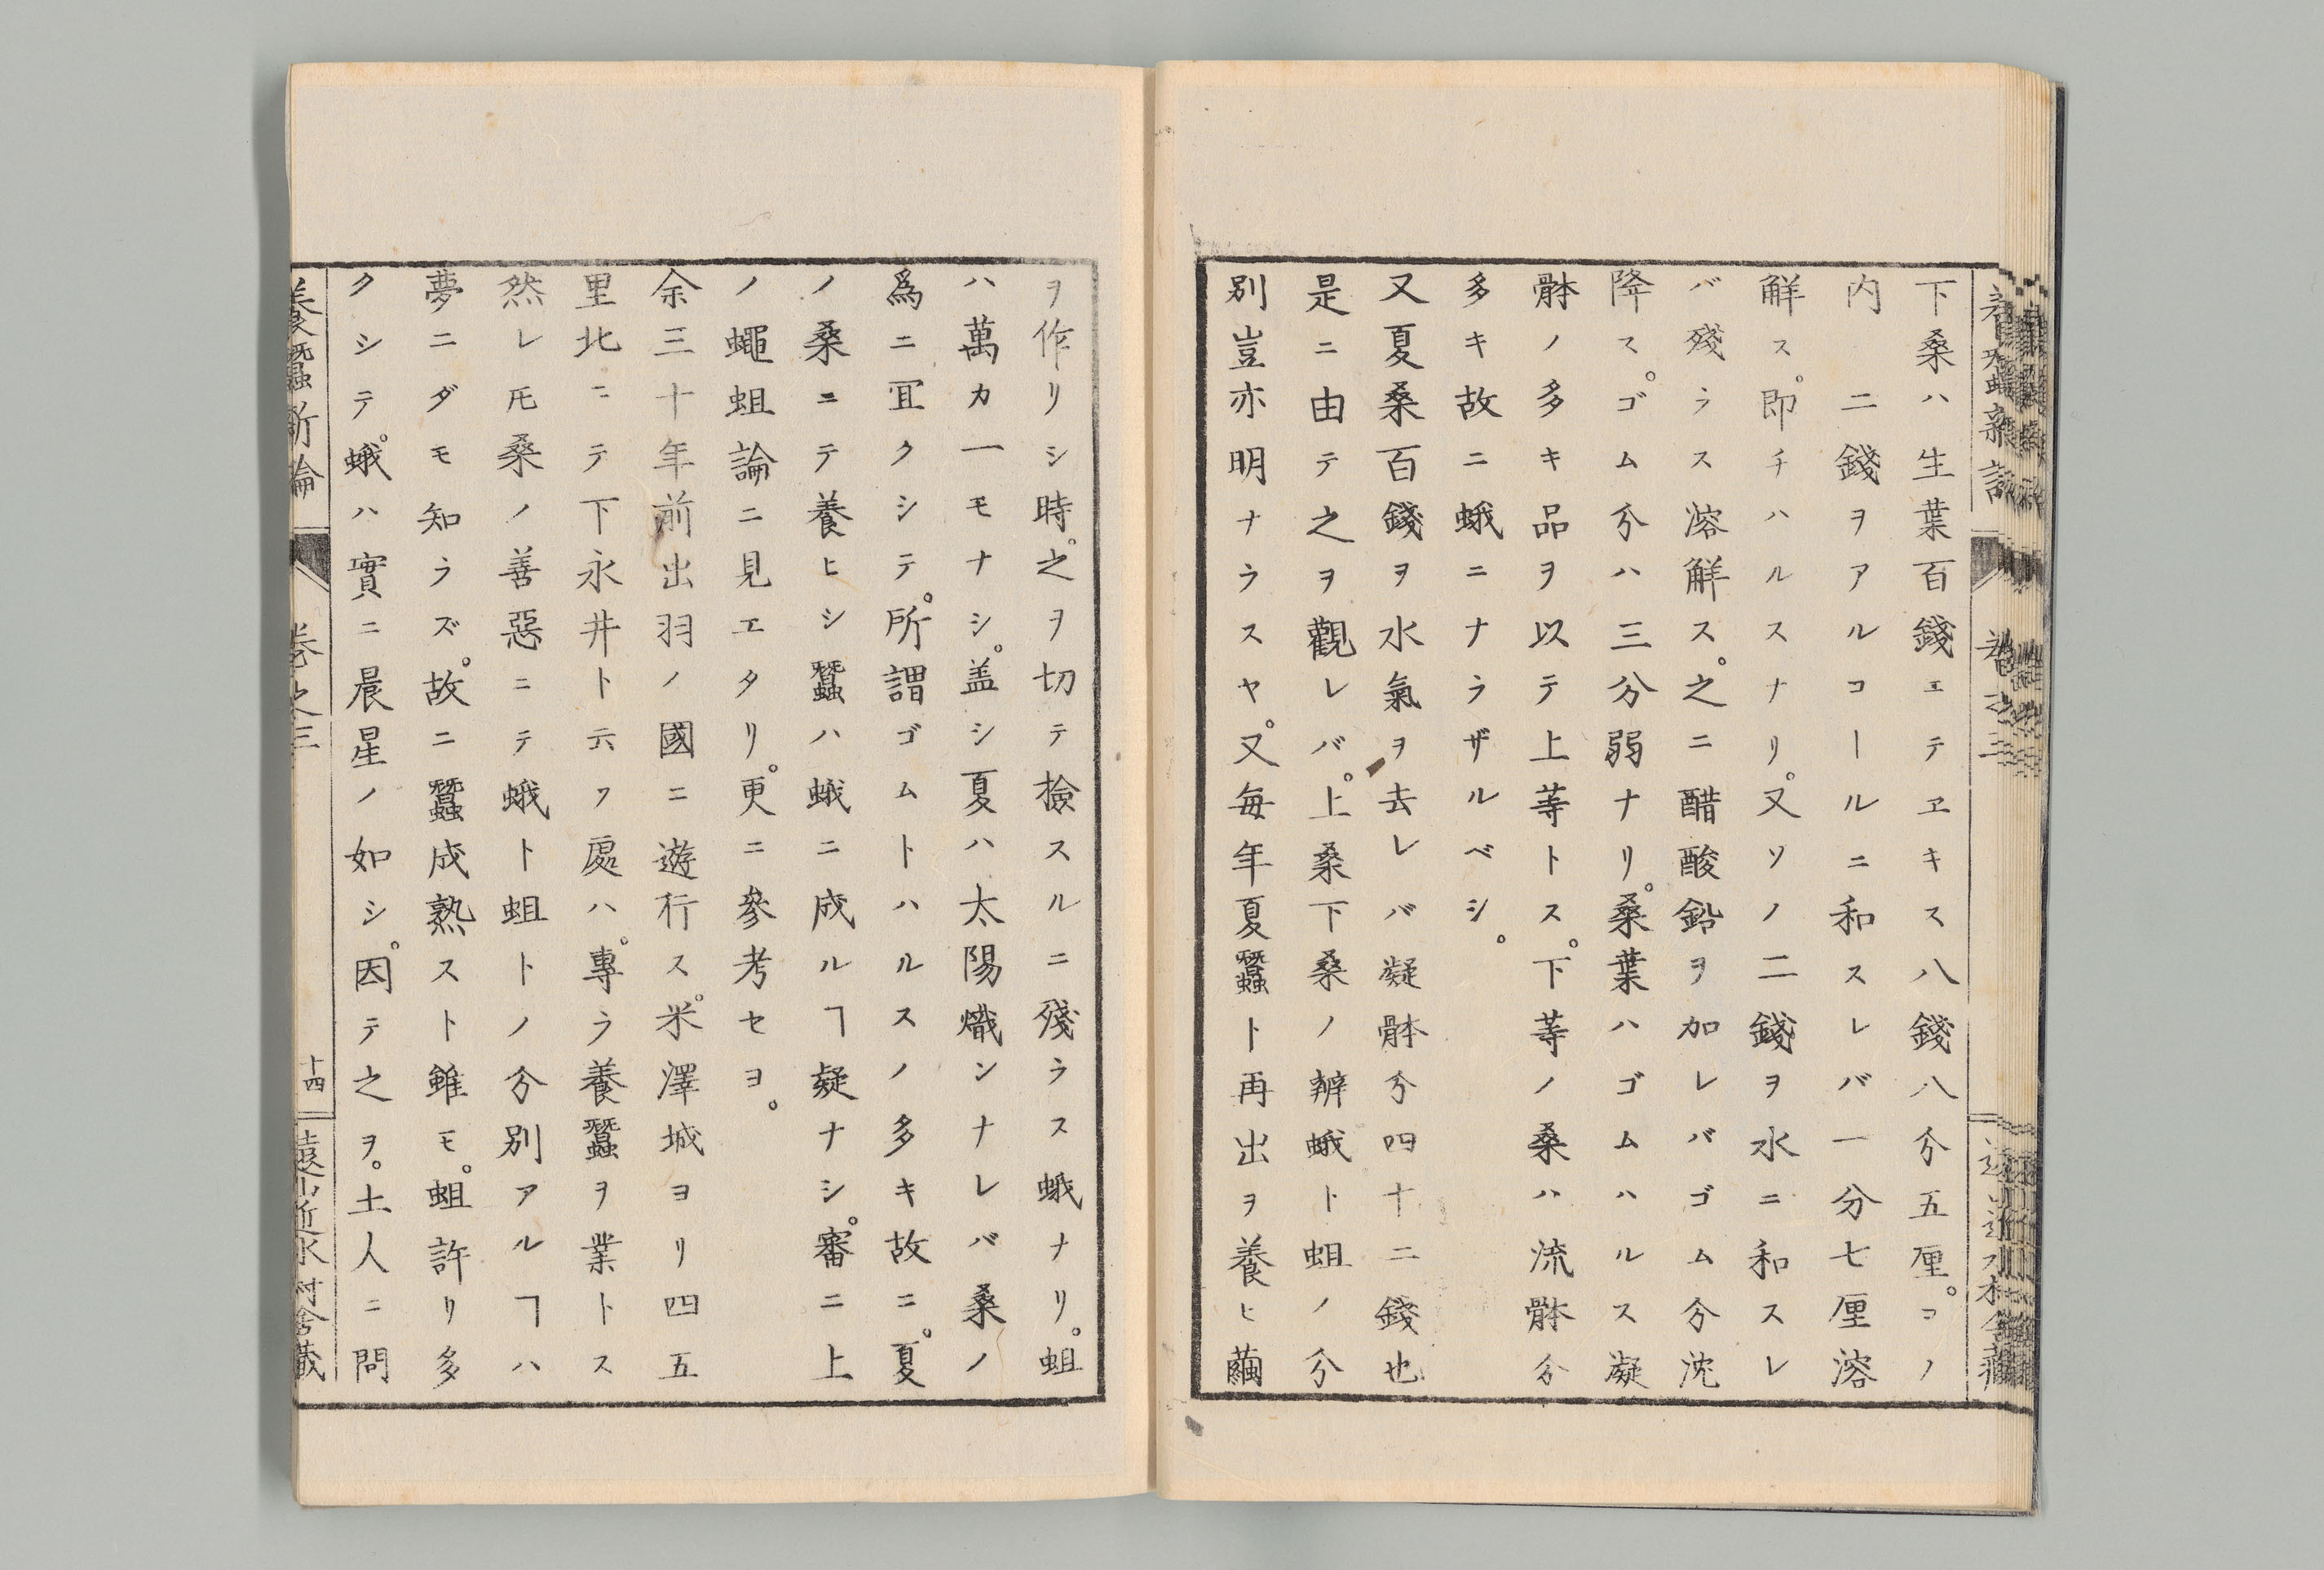 下桑ハ生葉百錢ヱテヱキス八錢八分五厘。コノ
内二錢ヲアルコールニ和スレバ一分七厘溶
觧ス。即チハルスナリ。又ソノ二錢ヲ水ニ和スレ
バ殘ラス溶觧ス。之ニ醋酸鉛ヲ加レバゴム分沈
降ス。ゴム分ハ三分弱ナリ。桑葉ハゴムハルス凝
骵ノ多キ品ヲ以テ上等トス。下等ノ桑ハ流骵分
多キ故ニ蛾ニナラザルベシ。
又夏桑百錢ヲ水氣ヲ去レバ凝骵分四十二錢也
是ニ由テ之ヲ觀レバ。上桑下桑ノ辨蛾ト蛆ノ分
别豈亦明ナラスヤ。又毎年夏蠶ト再出ヲ養ヒ繭
ヲ作リシ時。之ヲ切テ撿スルニ殘ラス蛾ナリ。蛆
ハ萬カ一モナシ。盖シ夏ハ太陽熾ンナレバ桑ノ
爲ニ冝クシテ。所謂ゴムトハルスノ多キ故ニ。夏
ノ桑ニテ養ヒシ蠶ハ蛾ニ成ルヿ疑ナシ。審ニ上
ノ蠅蛆論ニ見エタリ。更ニ參考セヨ。
余三十年前出羽ノ國ニ遊行ス。米澤城ヨリ四五
里北ニテ下永井ト云フ處ハ。專ラ養蠶ヲ業トス
然レ𪜈桑ノ善惡ニテ蛾ト蛆トノ分别アルヿハ
夢ニダモ知ラズ。故ニ蠶成熟スト雖モ。蛆許リ多
クシテ。蛾ハ實ニ晨星ノ如シ。因テ之ヲ。土人ニ問
養蠶新論 卷之三 十四 遠山近水村舎藏